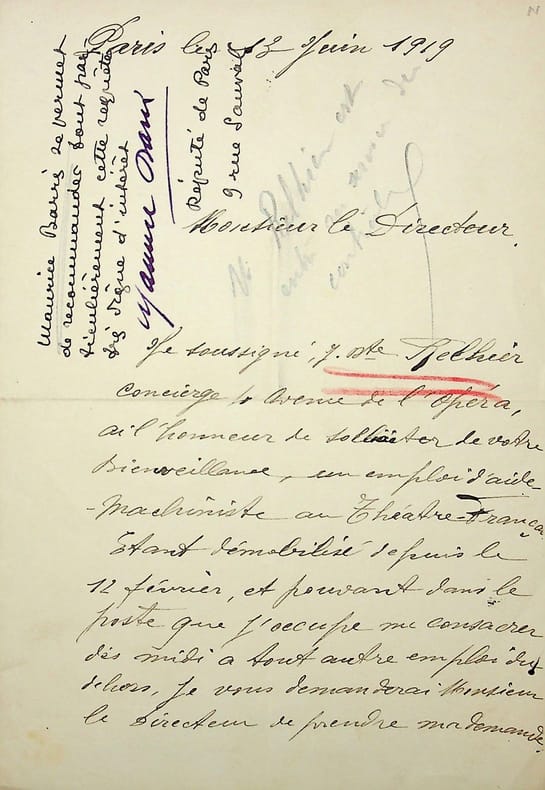 Paris le 13 Juin 1919
Maurice Barrès se permet
de recommander tout par-
ticulièrement cette requête
très digne d'intérêt
Maurice Barrès
Député de Paris
9 rue Sauval
M. Relhier est
entré au service du
contrôle
Monsieur le Directeur.
Je soussigné, J. Bte Relhier
concierge Avenue de l'Opéra,
ai l'honneur de solliciter de votre
Bienveillance, un emploi d'aide
-Machiniste au Théâtre-Françai
Etant démobilisé depuis le
12 février, et pouvant dans le
poste que j'occupe me consacrer
dès midi a tout autre emploi du
dehors, Je vous demanderai Monsieur
le Directeur de prendre ma demande